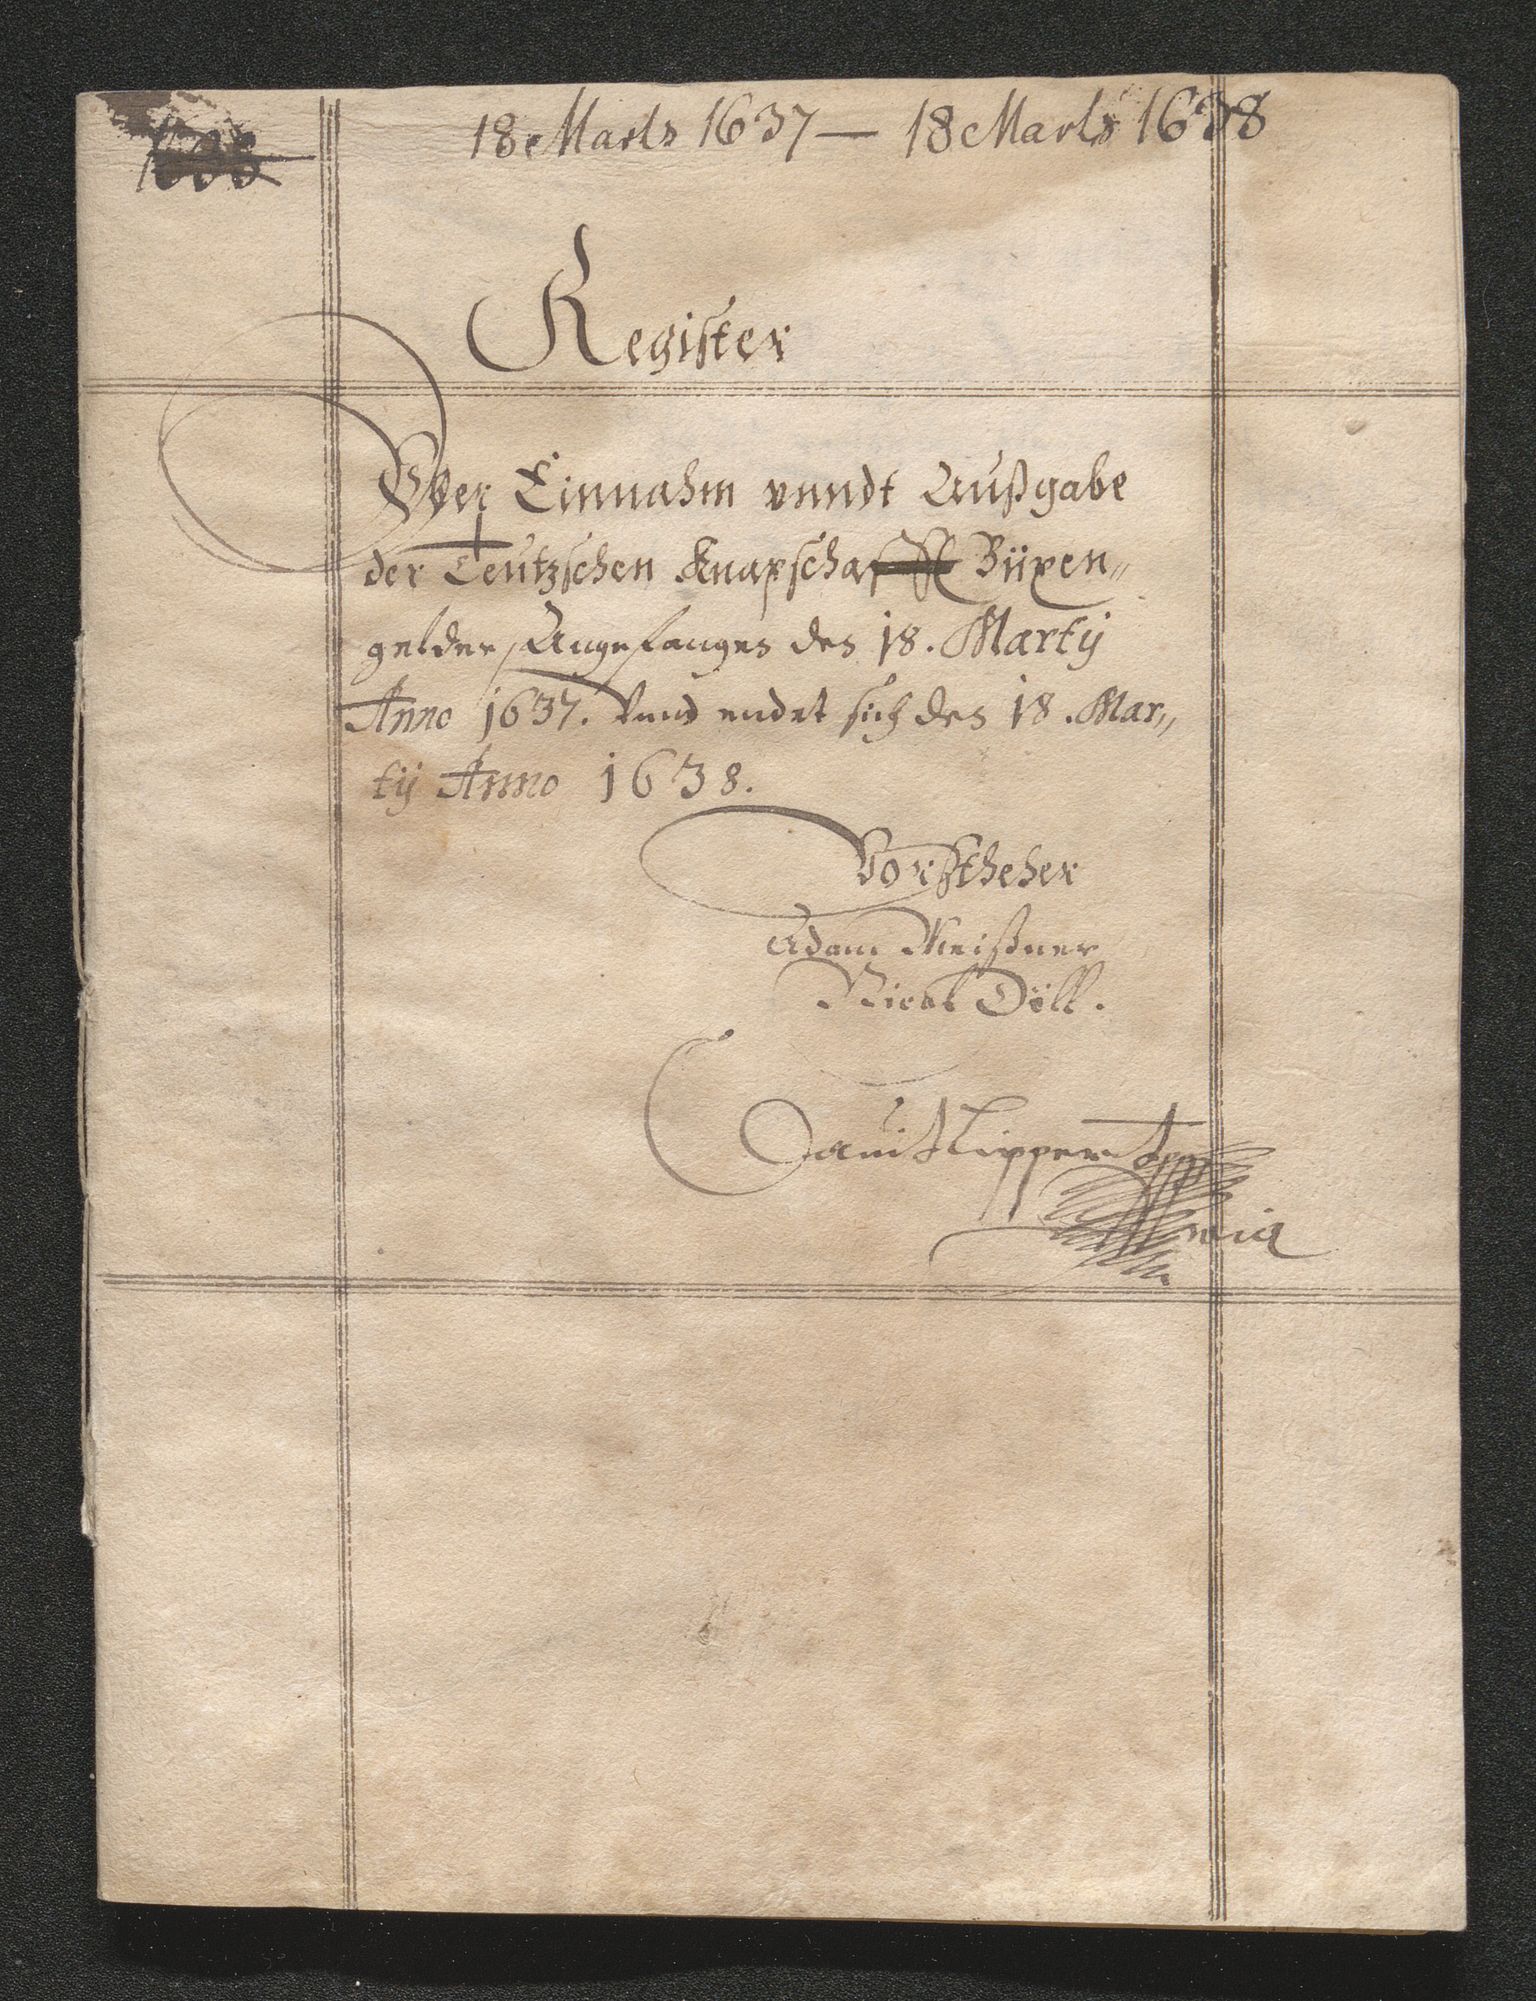 1638
18 Marts 1637 — 18 Marts 1638
Register
Vber Einnahm vnndt Außgabe
der Teutzschen Knapschafft Büxen„
gelder, Angefangen den 18. Marty
Anno 1637. Vnnd endet sich den 18. Mar„
ty Anno 1638.
Vorsteheher
Adam Meißner
Nicol Döll.
Davit Lippert